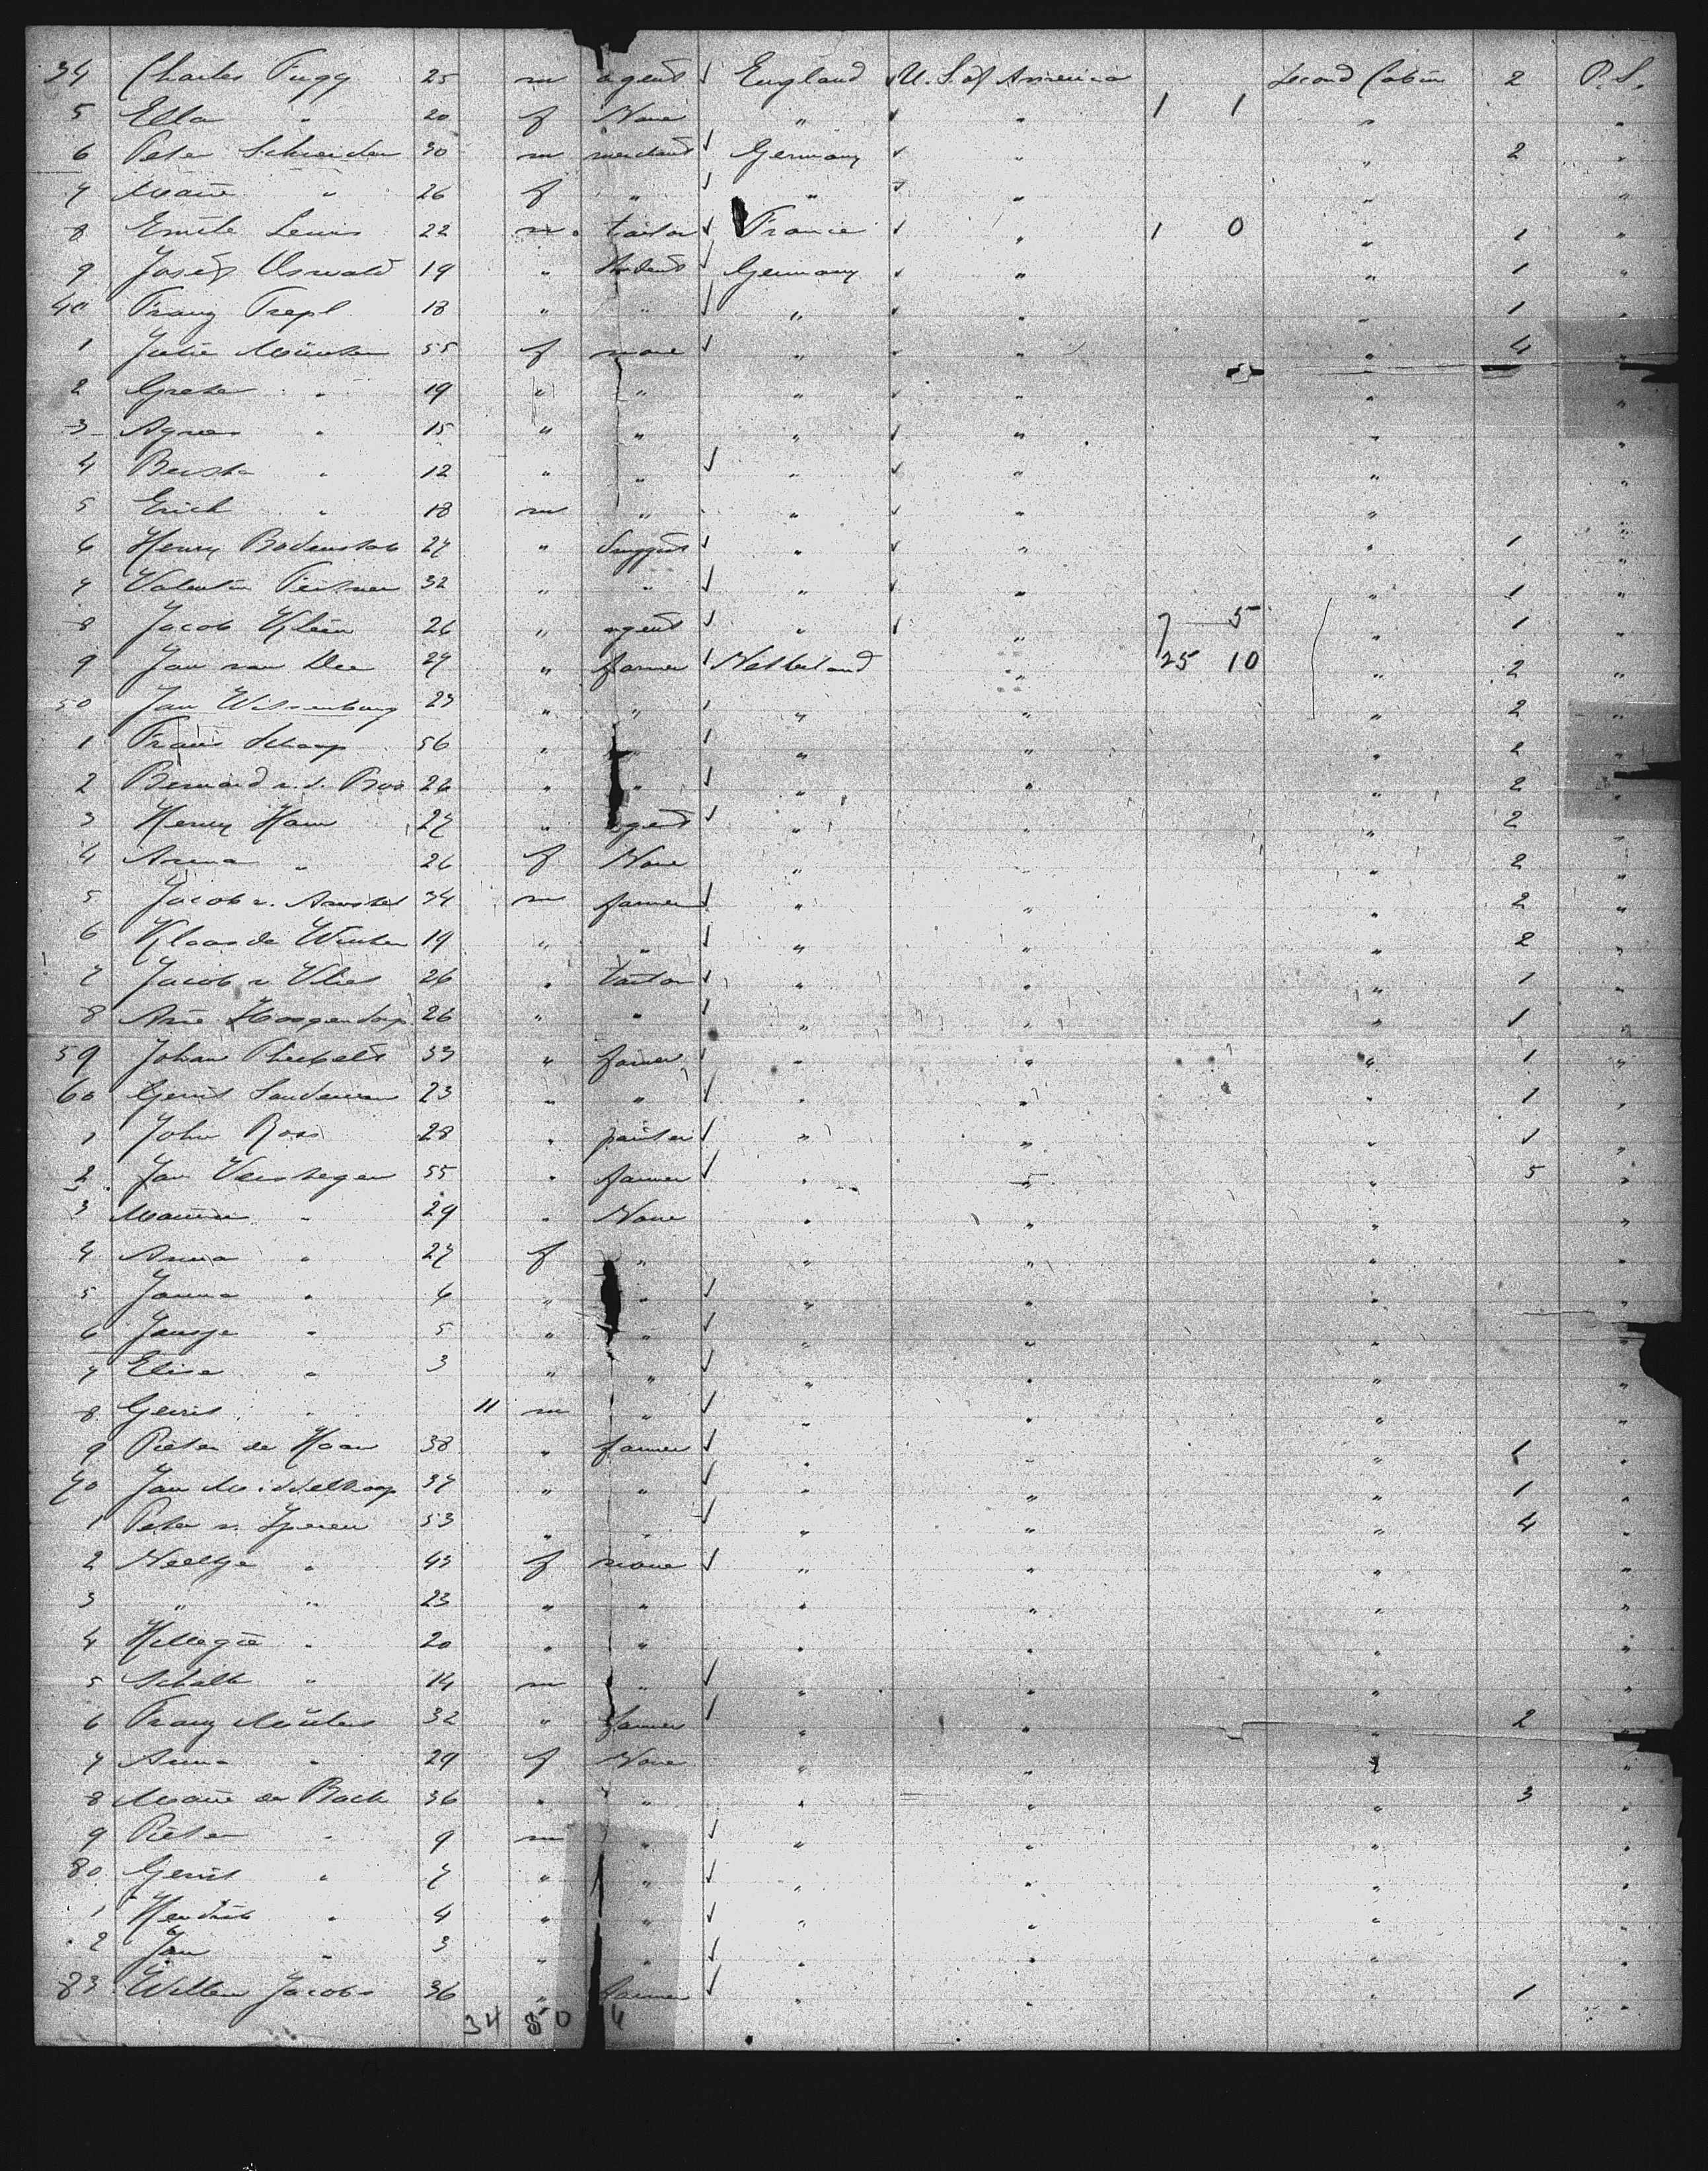 34 Charles Fugg 25 m agent England U. S. of America Second Cabin 2 P. S.
5 Ella " 20 f None " " 1 1 " "
6 Peter Schneider 30 m merchant Germany " " 2 "
7 Marie " 26 f " " " " "
8 Emile Lewis 22 m. tailor France " 1 0 " 1 "
9 Josef Oswald 19 " Student Germany " " 1 "
40 Franz Trepl 18 " " " " " 1 "
1 Julie 55 f none " " " 4 "
2 Grete " 19 " " " " " "
3 Agnes " 15 " " " " " "
4 Bertha " 12 " " " " " "
5 Erich " 18 m " " " " "
6 Henry Bodenstab 27 " Druggist " " " 1 "
7 Valentin 32 " " " " " 1 "
8 Jacob Klein 26 " agent " " 7 5 " 1 "
9 Jan van 27 " farmer Netherland " 25 10 " 2 "
50 Jan Wissenburg 23 " " " " " 2 "
1 Frans Schaap 56 " " " " " 2 "
2 Bernard v. d. Bos 26 " " " " " 2 "
3 Henry Ham 27 " agent " " " 2 "
4 Anna " 26 f None " " " 2 "
5 Jacob v. Amstel 34 m farmer " " " 2 "
6 Klaas de Winter 19 " " " " " 2 "
7 Jacob v Vliet 26 " tailor " " " 1 "
8 Arie Hoogendorp 26 " " " " " 1 "
59 Johan 53 " farmer " " " 1 "
60 Gerrit Sanderman 23 " " " " " 1 "
1 John Ross 28 " painter " " " 1 "
2 Jan Verstegen 55 " farmer " " " 5 "
3 29 " None " " " "
4 Anna " 27 f " " " " "
5 Janna " 6 " " " " " "
6 Jansje " 5 " " " " " "
7 Elisa " 3 " " " " " "
8 Gerrit " 11 m " " " " "
9 Pieter de Haan 38 " farmer " " " 1 "
70 Jan Middelkoop 37 " " " " " 1 "
1 Peter v. Iperen 53 " " " " " 4 "
2 Neeltje " 43 f none " " " "
3 " " 23 " " " " " "
4 Hillegie " 20 " " " " " "
5 Schalk " 14 m " " " " "
6 Franz 32 " farmer " " " 2 "
7 Anna " 29 f None " " " "
8 Marie de Back 36 " " " " " 3 "
9 Pieter " 9 m " " " " "
80 Gerrit " 7 " " " " " "
1 Hendrik " 4 " " " " " "
2 Jan " 3 " " " " " "
83 Willem Jacobs 36 " farmer " " " 1 "
34 50 6